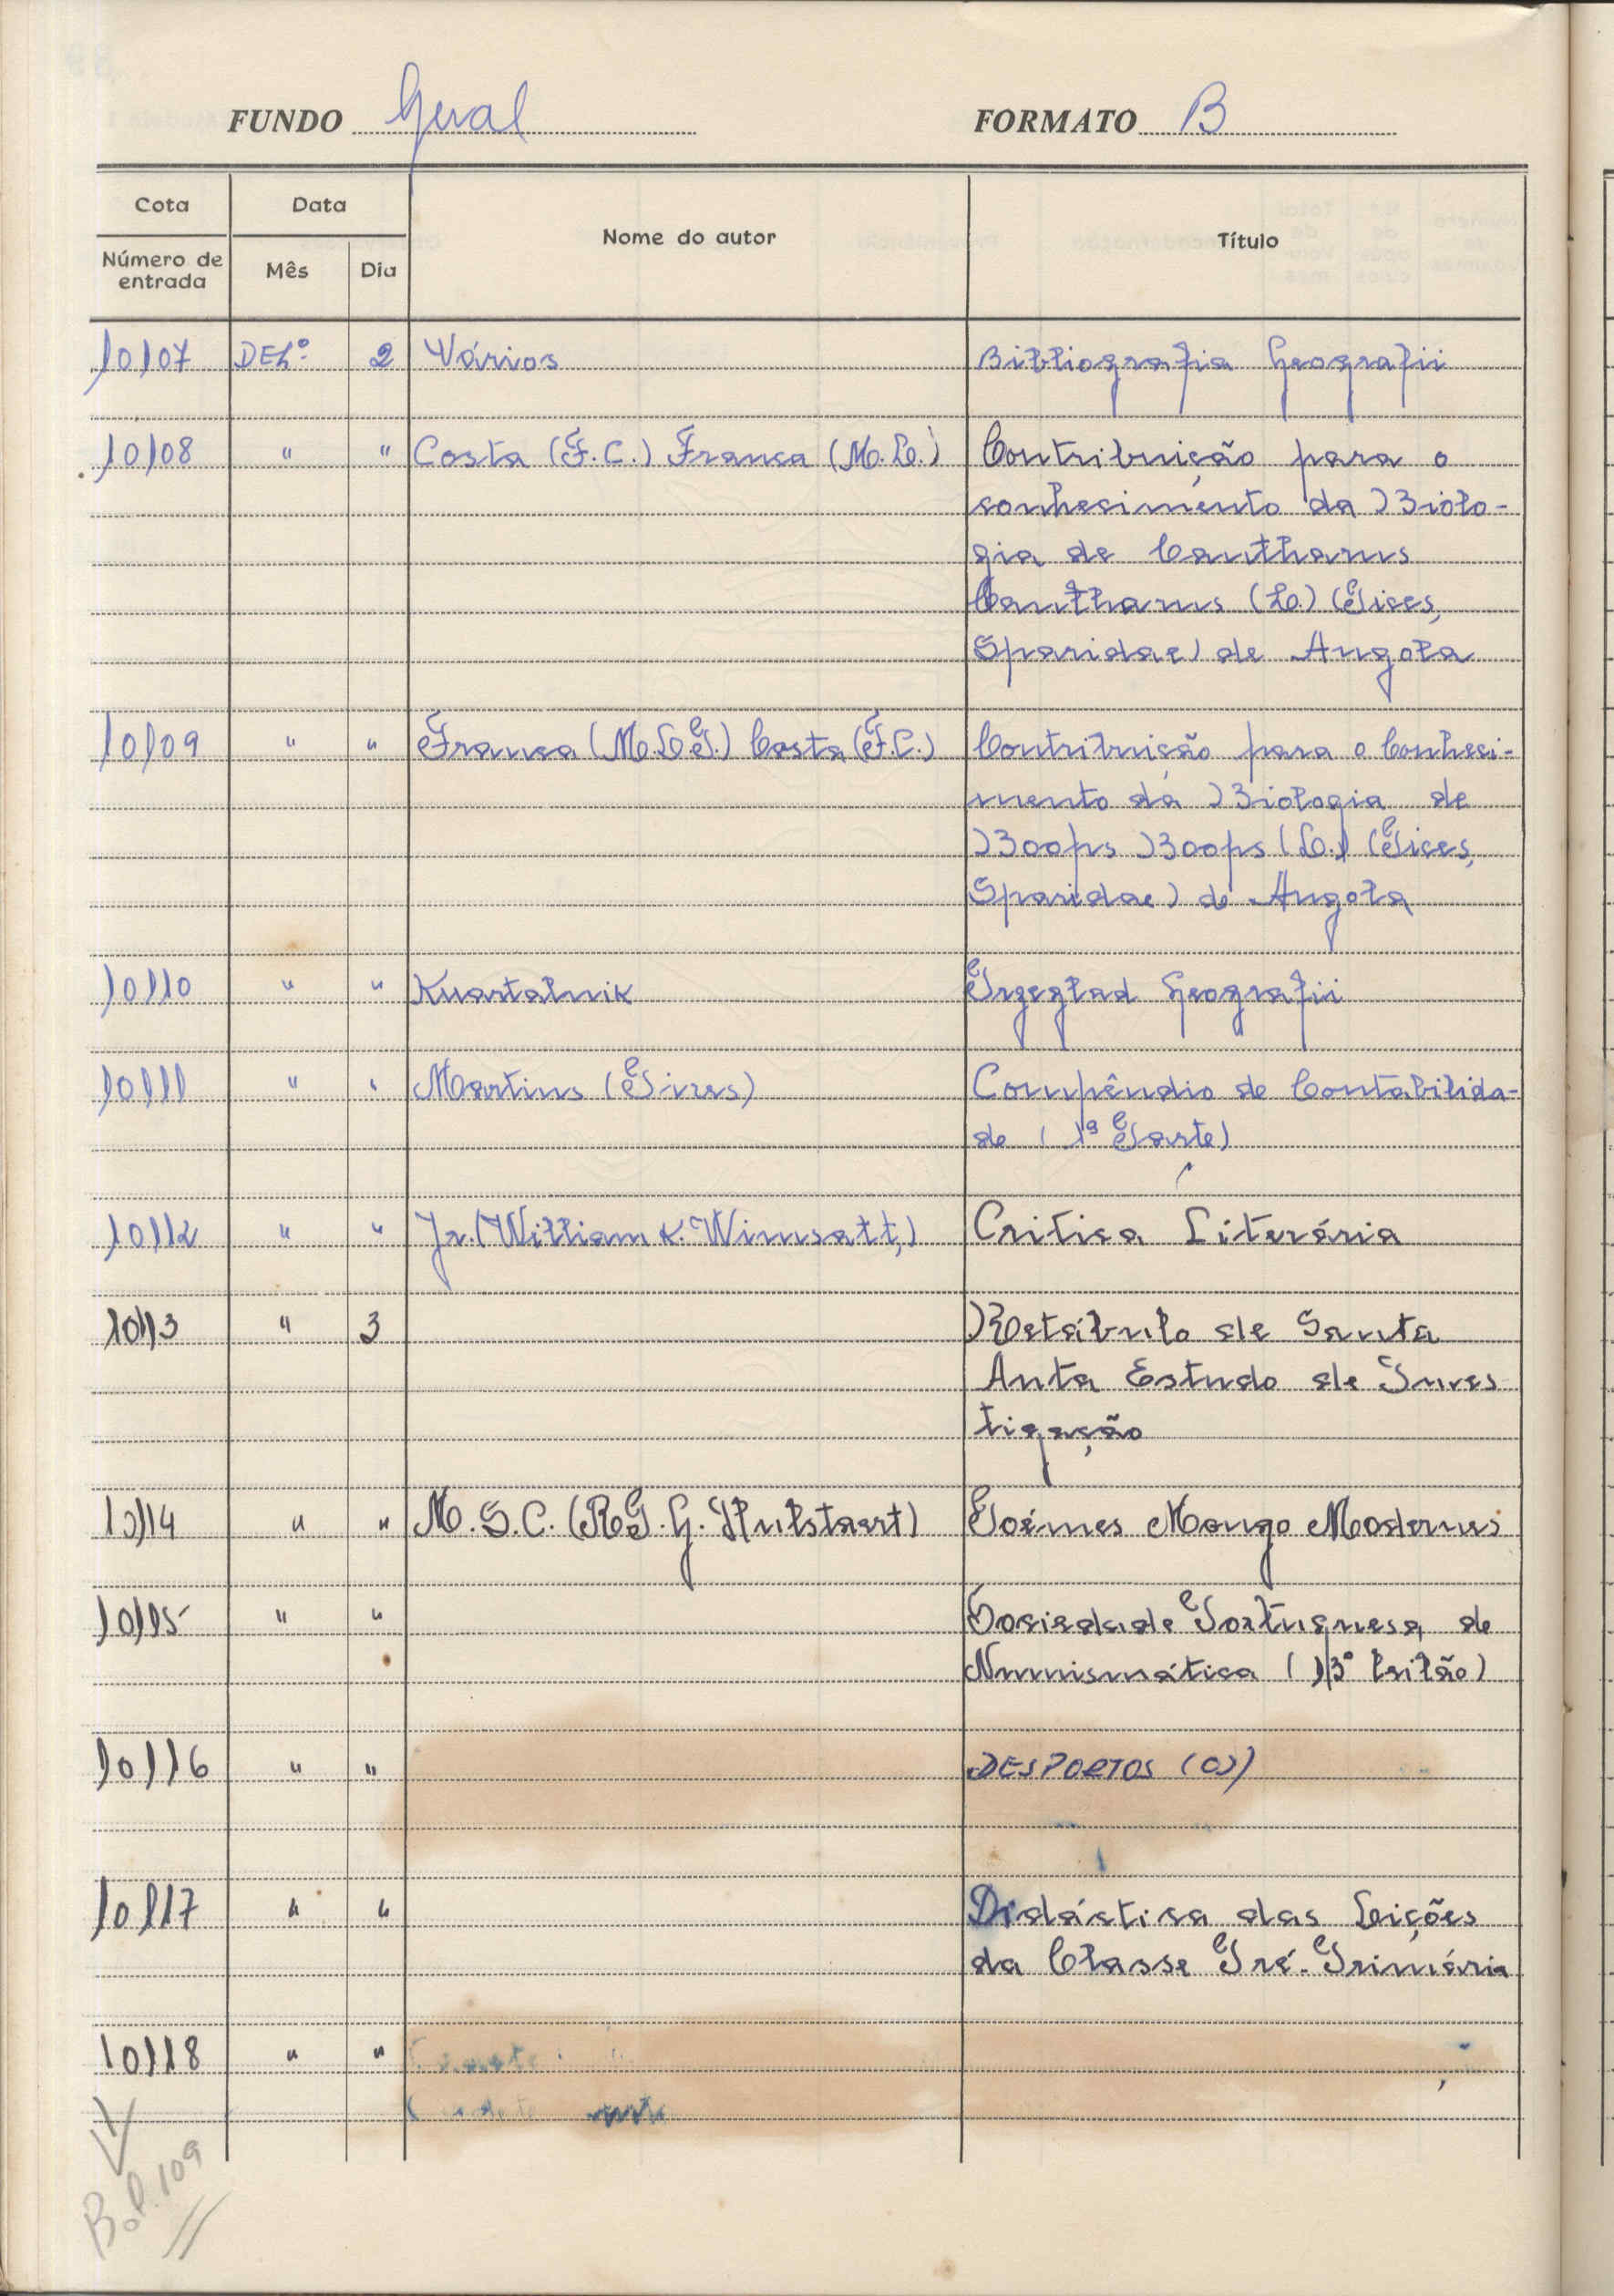 FUNDO Geral FORMATO B
Cota Data Nome do autor Título
Número de entrada Mês Dia
10107 DEZº 2 Vários Bibliografia Geografii
10108 " " Costa (F. C.) Franca (M. L.) Contribuição para o
conhecimento da Biolo-
gia de Cantharus
Cantharus (L.) (Pisces,
Sparidae) de Angola
10109 " " Franca (M. L. P.) Costa (F. C.) Contribuição para o Conheci-
mento da Biologia de
Boops Boops (L.) (Pisces,
Sparidae) de Angola
10110 " " Kwartalnik Przeglad Geografii
10111 " " Martins (Pires) Compêndio de Contabilida-
de (1ª Parte)
10112 " " Jr. (William K. Wimsatt,) Critica Literária
10113 " 3 Retábulo de Santa
Anta Estudo de Inves
tigação
10114 " " M. S. C. (R. P. G. Hulstaert) Poémes Mongo Modernes
10115 " " Sociedade Portuguesa de
Numismática (13º Leilão)
10116 " " DESPORTOS (OS)
10117 " " Didáctica das Leições
da Classe Pré-Primária
10118 " "
Bol. 109